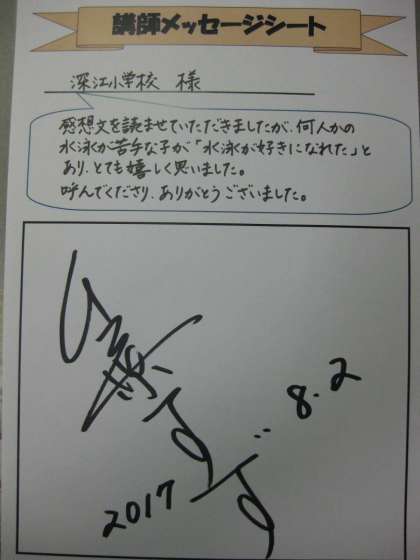 講師メッセージシート
深江小学校 様
感想文を読ませていただきましたが、何人かの
水泳が苦手な子が「水泳が好きになれた」と
あり、とても嬉しく思いました。
呼んでくださり、ありがとうございました。
8.2
2017